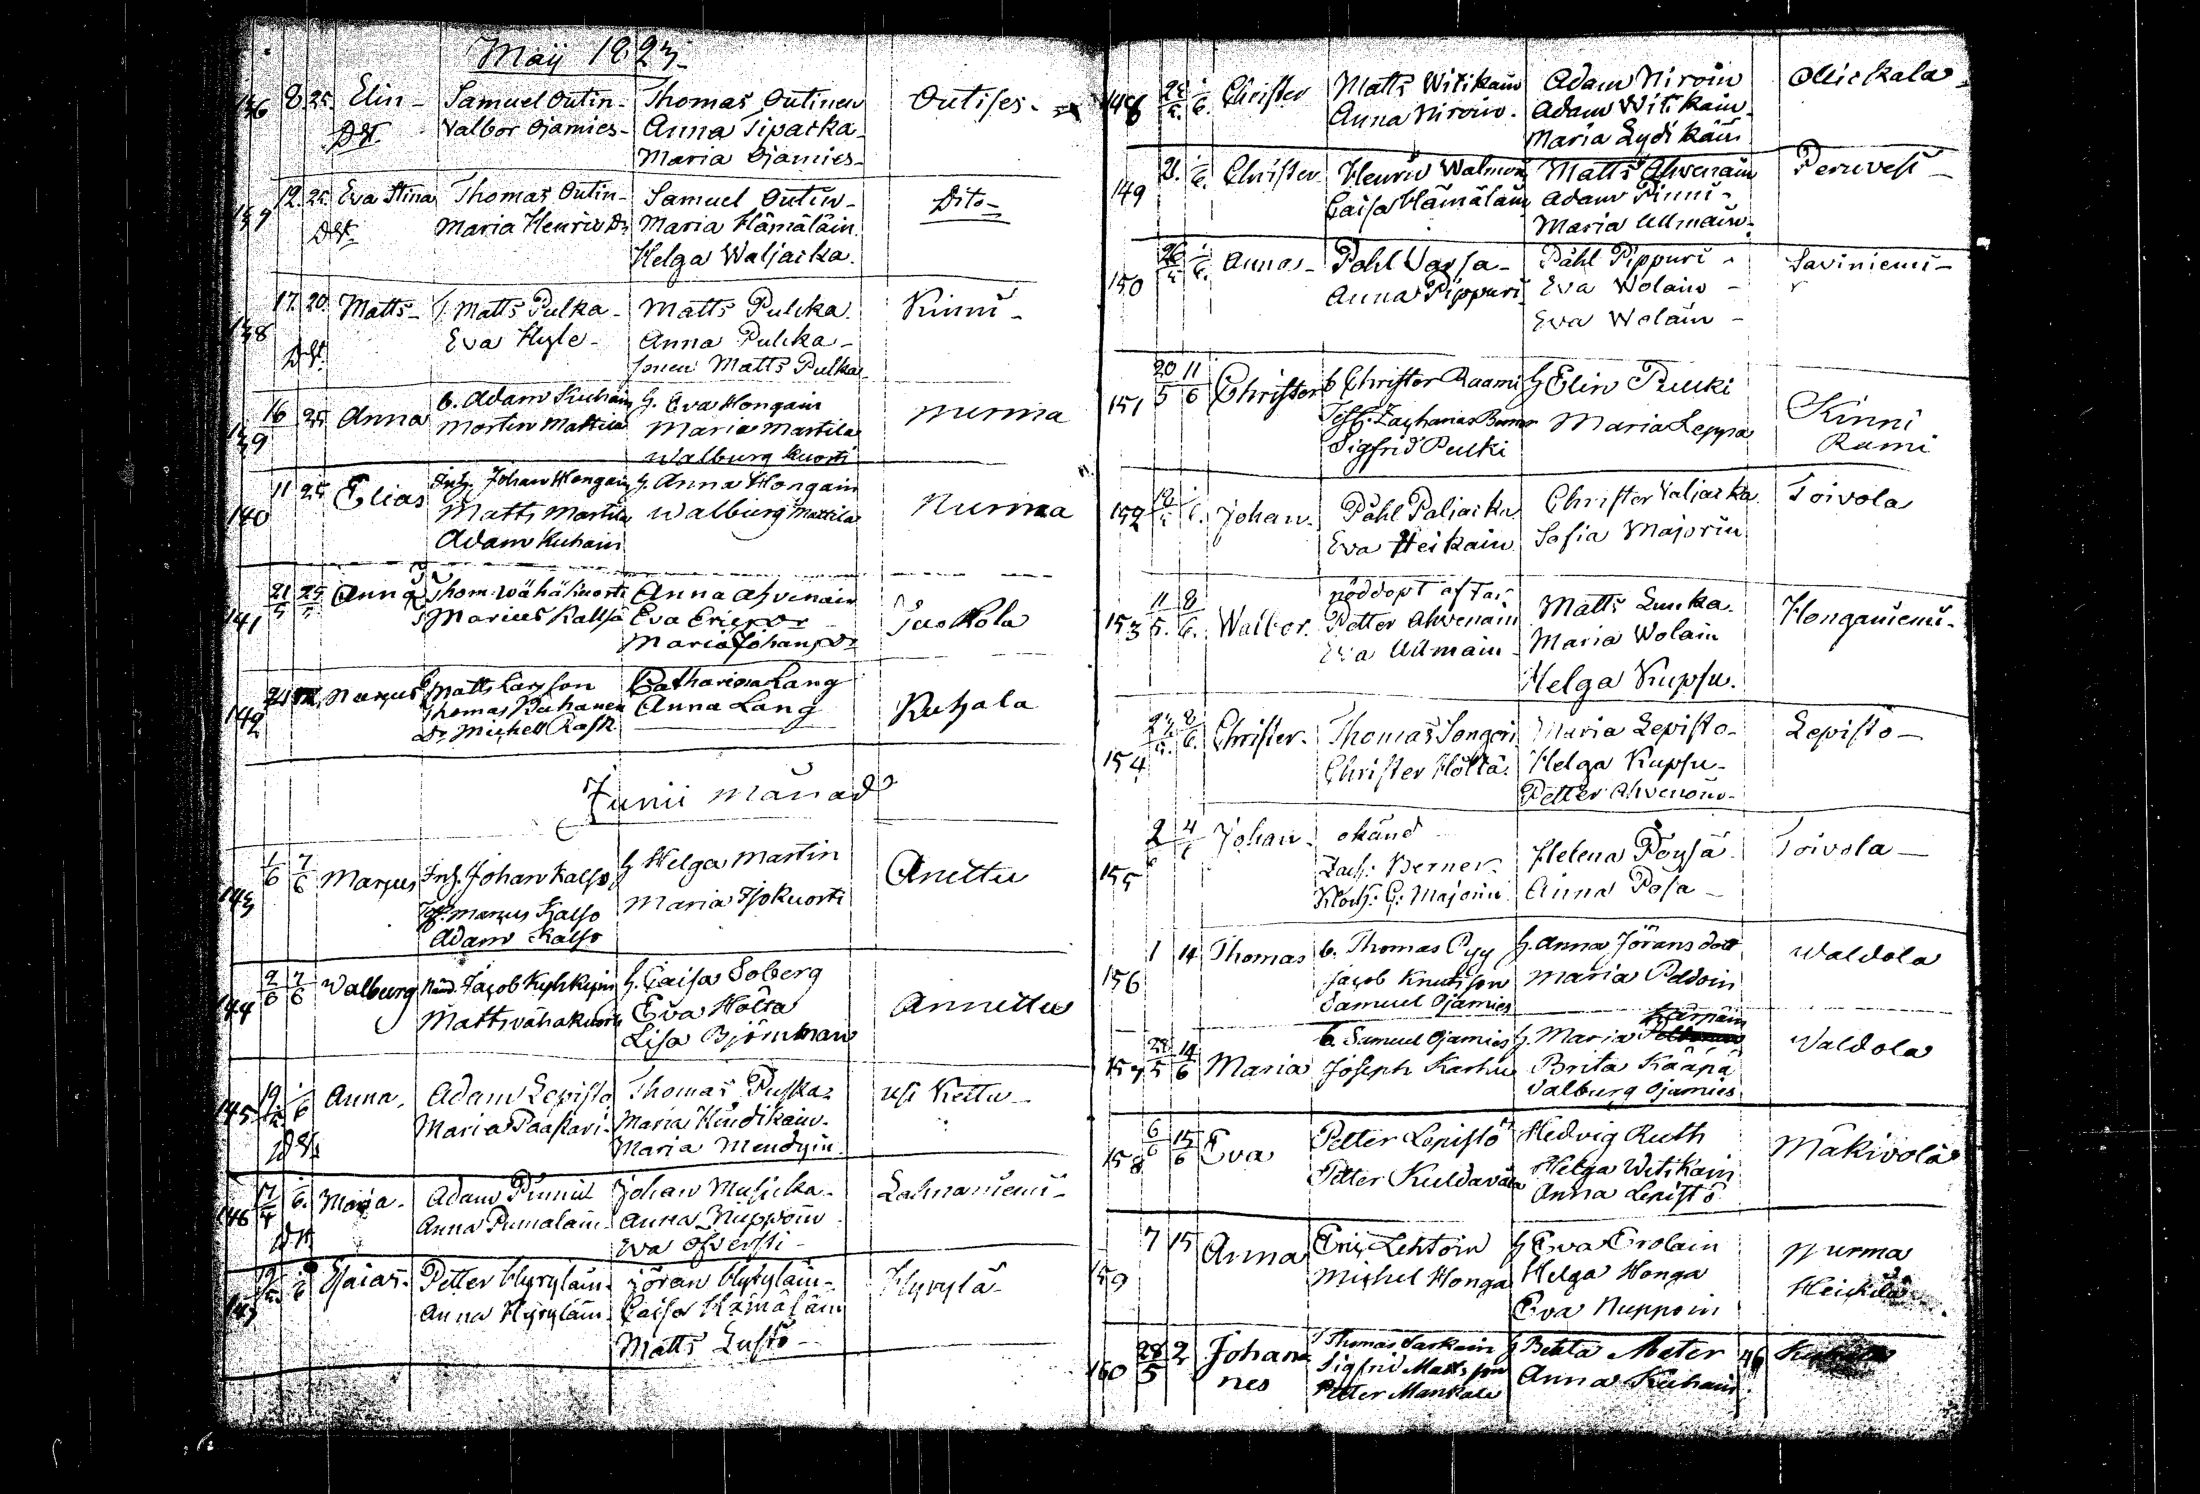 Maij 1823
136 8 25 Elin - Samuel Outin - Thomas Outinen Outises -
Dst. Valbor Ojamies - Anna Siparka
Maria Ojamies -
137 12. 25. Eva Stina Thomas Outin - Samuel Outin - Dito -
Dst. Maria Henrics Dr Maria Hämäläin.
Helga Waljacka.
138 17. 20. Matts - Matts Pulka - Matts Pulcka Kinni -
Eva Hyle - Anna Pulcka -
Dst. sonen Matts Pulka
139 16 25 Anna b. Adam Kuhain h. Eva Hongain Nurma
Morten Mattila Maria Martila
Walburg Kuorti
140 11 25 Elias Inh. Johan Hongain h. Anna Hongain Nurma
Matts Martila Walburg Mattila
Adam Kuhain
141 21/5 25/5 Anna Thom. Wähäkuorti Anna Ahvenain Juokola
Marcus Kallso Eva Ericsdr
Maria Johansdr
142 21 Marcus Matts Larsson Catharina Lang Kuhala
Thomas Kuhanen Anna Lang
Dr Michell Rask
Junii månad
143 1/6 7/6 Marcus Inh. Johan Kalso h Helga Martin Anettu
Marcus Kalso Maria Isokuorti
Adam Kalso
144 2/6 7/6 Walburg Jacob Kyhkyin h. Caisa Soberg Annettu
Matts vähakuorti Eva Hölta
Lisa Björnman
145 19 /6 Anna. Adam Lepisto Thomas Puska
Maria Paastari - Maria Kindikain -
Dst. Maria Mendyin
146 17/4 /6. Maria. Adam Pinni Johan Musicka - Lahnaniemi -
Anna Pumalain - Anna Nuppoin
Dst. Eva
147 /6 Esaias. Petter Hyrylain - Jöran Hyrylain - Hyrylä -
Anna Hyrylain - Caisa Hämäläin
Matts Lusto -
148 /6. Christer Matts Witikain Adam Niroin Ollickala
Anna Niroin. Adam Witikain
Maria Lydikäin
149 21. /6. Christer Henric Walmoin Matts Ahvenain Peruvesi -
Caisa Hämäläin Adam Pinni -
Maria Ullmain -
150 26 /6. Anna - Påhl Varsa - Påhl Pippuri - Saviniemi -
Anna Pippuri Eva Wolain -
Eva Wolain -
151 20/5 11/6 Christer b Christer Raami h Elin Pulki Kinni
Zacharias Berner Maria Leppä Rami
Sigfrid Pulki
152 /6. Johan. Påhl Paljacka Christer Valjacka Toivola
Eva Heikain Sofia Majorin
153 11/5. 8/6. Walbor. nöddopt af
Petter Ahvenain Matts Lucka. Honganiemi -
Eva Ullmain - Maria Wolain
Helga Kupsu.
154 8/6. Christer. Thomas Songeri Maria Lepisto - Lepisto -
Christer Hölta. Helga Kupsu -
Petter Ahvenoin -
155 2/6 4/6 Johan. okänd Helena Pöysä Toivola -
Zach: Berner. Anna Posa -
Klock: G: Majorin
156 1 14 Thomas b. Thomas Pyy h. Anna Jörans dotr Waldola
Jacob Knutsson Maria Paldoin
Samuel Ojamies
157 28/5 14/6 Maria b. Samuel Ojamies h. Maria Kärpäin Valdola
Joseph Karhu Brita Kääpä
Valburg Ojamies
158 6/6 15/6 Eva Petter Lepistö Hedvig Ruth Mäkivola
Petter Kuldaväin Helga Witikain
Anna Lepistö
159 7 15 Anna Eric Lehtoin h Eva Erolain Nurma
Michel Honga Helga Honga Heickilä
Eva Nuppoin
160 28/5 2 Johan Thomas Tarkain h Beata Meter
nes Sigfrid Matts son Anna Kuhain
Petter Mankali